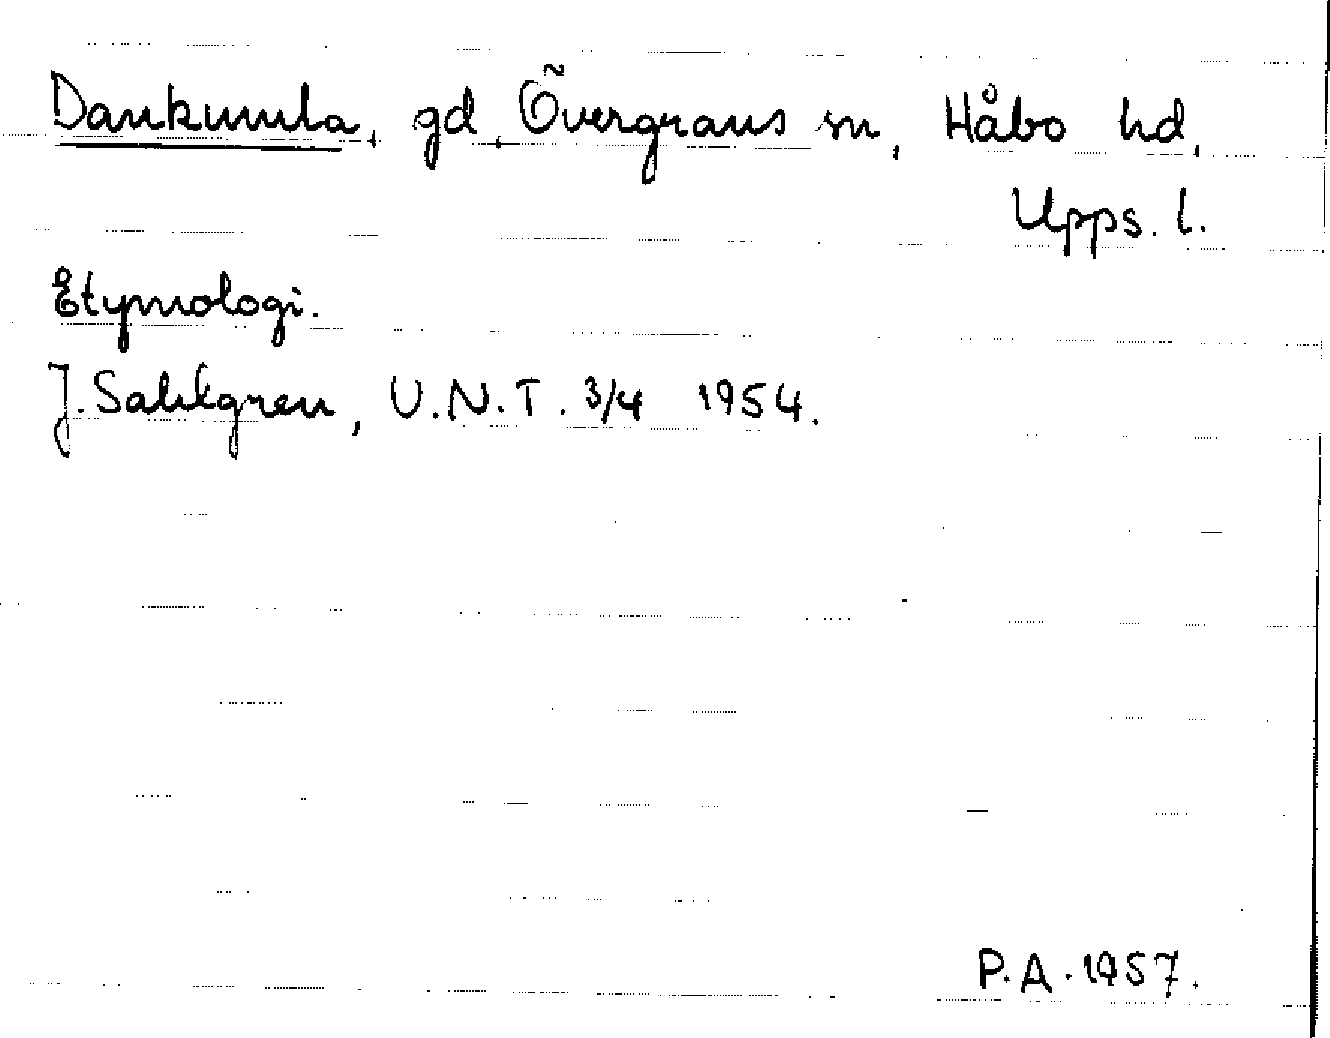 Dankumla, gd, Övergrans sn, Håbo hd,
Upps. l.
Etymologi.
J. Sahlgren, U.N.T. 3/4 1954.
P.A. 1957.